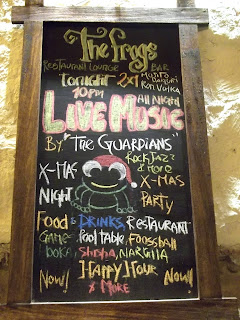 The Frogs
RESTAURANT LOUNGE BAR
Tonight 2x1 Mojito
10 PM Daiquiri
Ron Vodka
All Night
LIVE MUSIC
BY: "THE GUARDIANS"
Rock, Jazz
& More
X-MAS X-MAS
NIGHT PARTY
FOOD & DRINKS, RESTAURANT
GAME- Pool table, Foossball
BOKA, Shisha, NARGILLA
Now! HAPPY HOUR Now!
& MORE